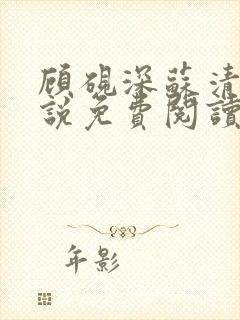 顧硯深蘇清
說免費閱讀
年影